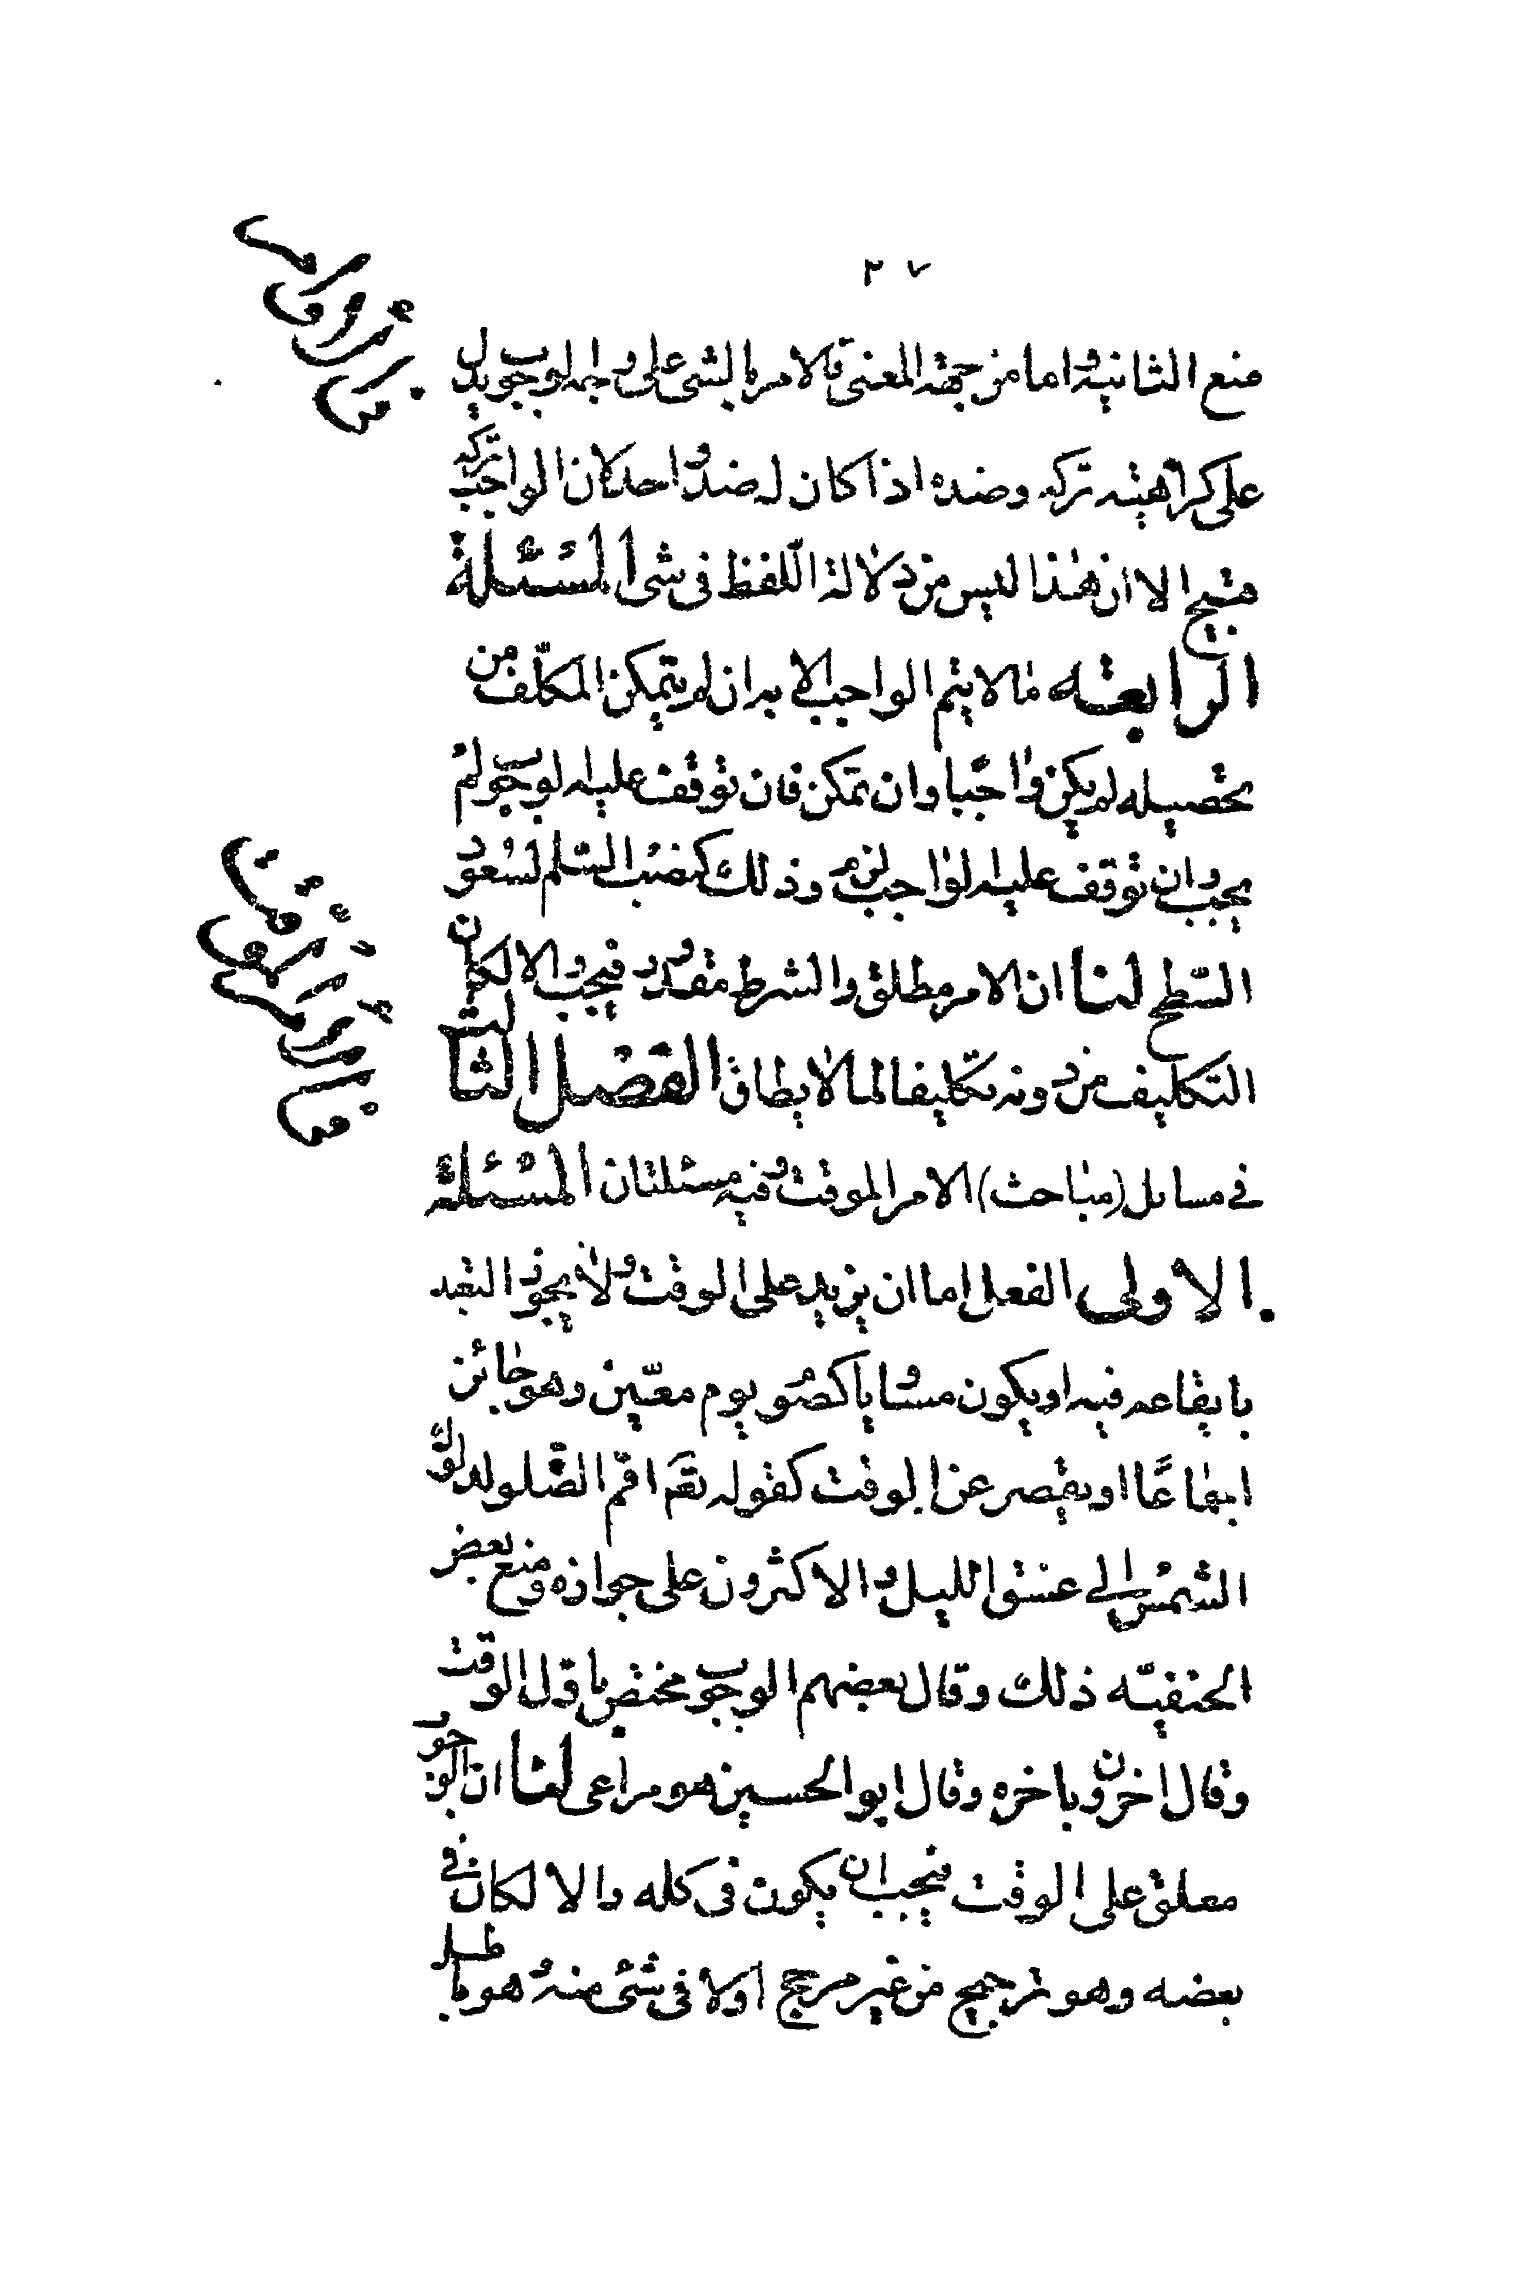 ٢٧
منع الثانية واما من جهة المعنى فالامر بالشى على وجه الوجوب يدل
على كراهته تركه وضده اذا كان له ضد واحد كان الواجب تركه
قبيح الا ان هذا ليس من دلالة اللفظ فى شى المسئلة
الرابعة ما لا يتم الواجب الا به ان لم يتمكن المكلّف من
تحصيله لم يكن واجبًا وان تمكن فان توقف عليه الوجوب لم
يجب وان توقف عليه الواجب لزم وذلك كنصب السّلم لصعود
السّطح لنا ان الامر مطلق والشرط مقدور فيجب والا لكان
التكليف من دونه تكليفا لما لا يطاق الفصل الثالث
فى مسايل (مباحث) الامر الموقت وفيه مسئلتان المسئلة
الاولى الفعل اما ان يزيد على الوقت ولا يجوز التعبد
بايقاعه فيه او يكون مساويا كصوم يوم معيّن وهو جائز
ايقاعًا او يقصر عن الوقت كقوله تعم اقم الصّلوة لدلوك
الشمس الى غسق الليل والاكثرون على جوازه ومنع بعض
الحنفيّه ذلك وقال بعضهم الوجوب مختص باول الوقت
وقال اخرون وباخره وقال ابو الحسين هو مراعى لنا ان الوجوب
معلق على الوقت فيجب ان يكون فى كله والا لكان فى
بعضه وهو ترجيح من غير مرجح اولا فى شئ منه وهو باطل